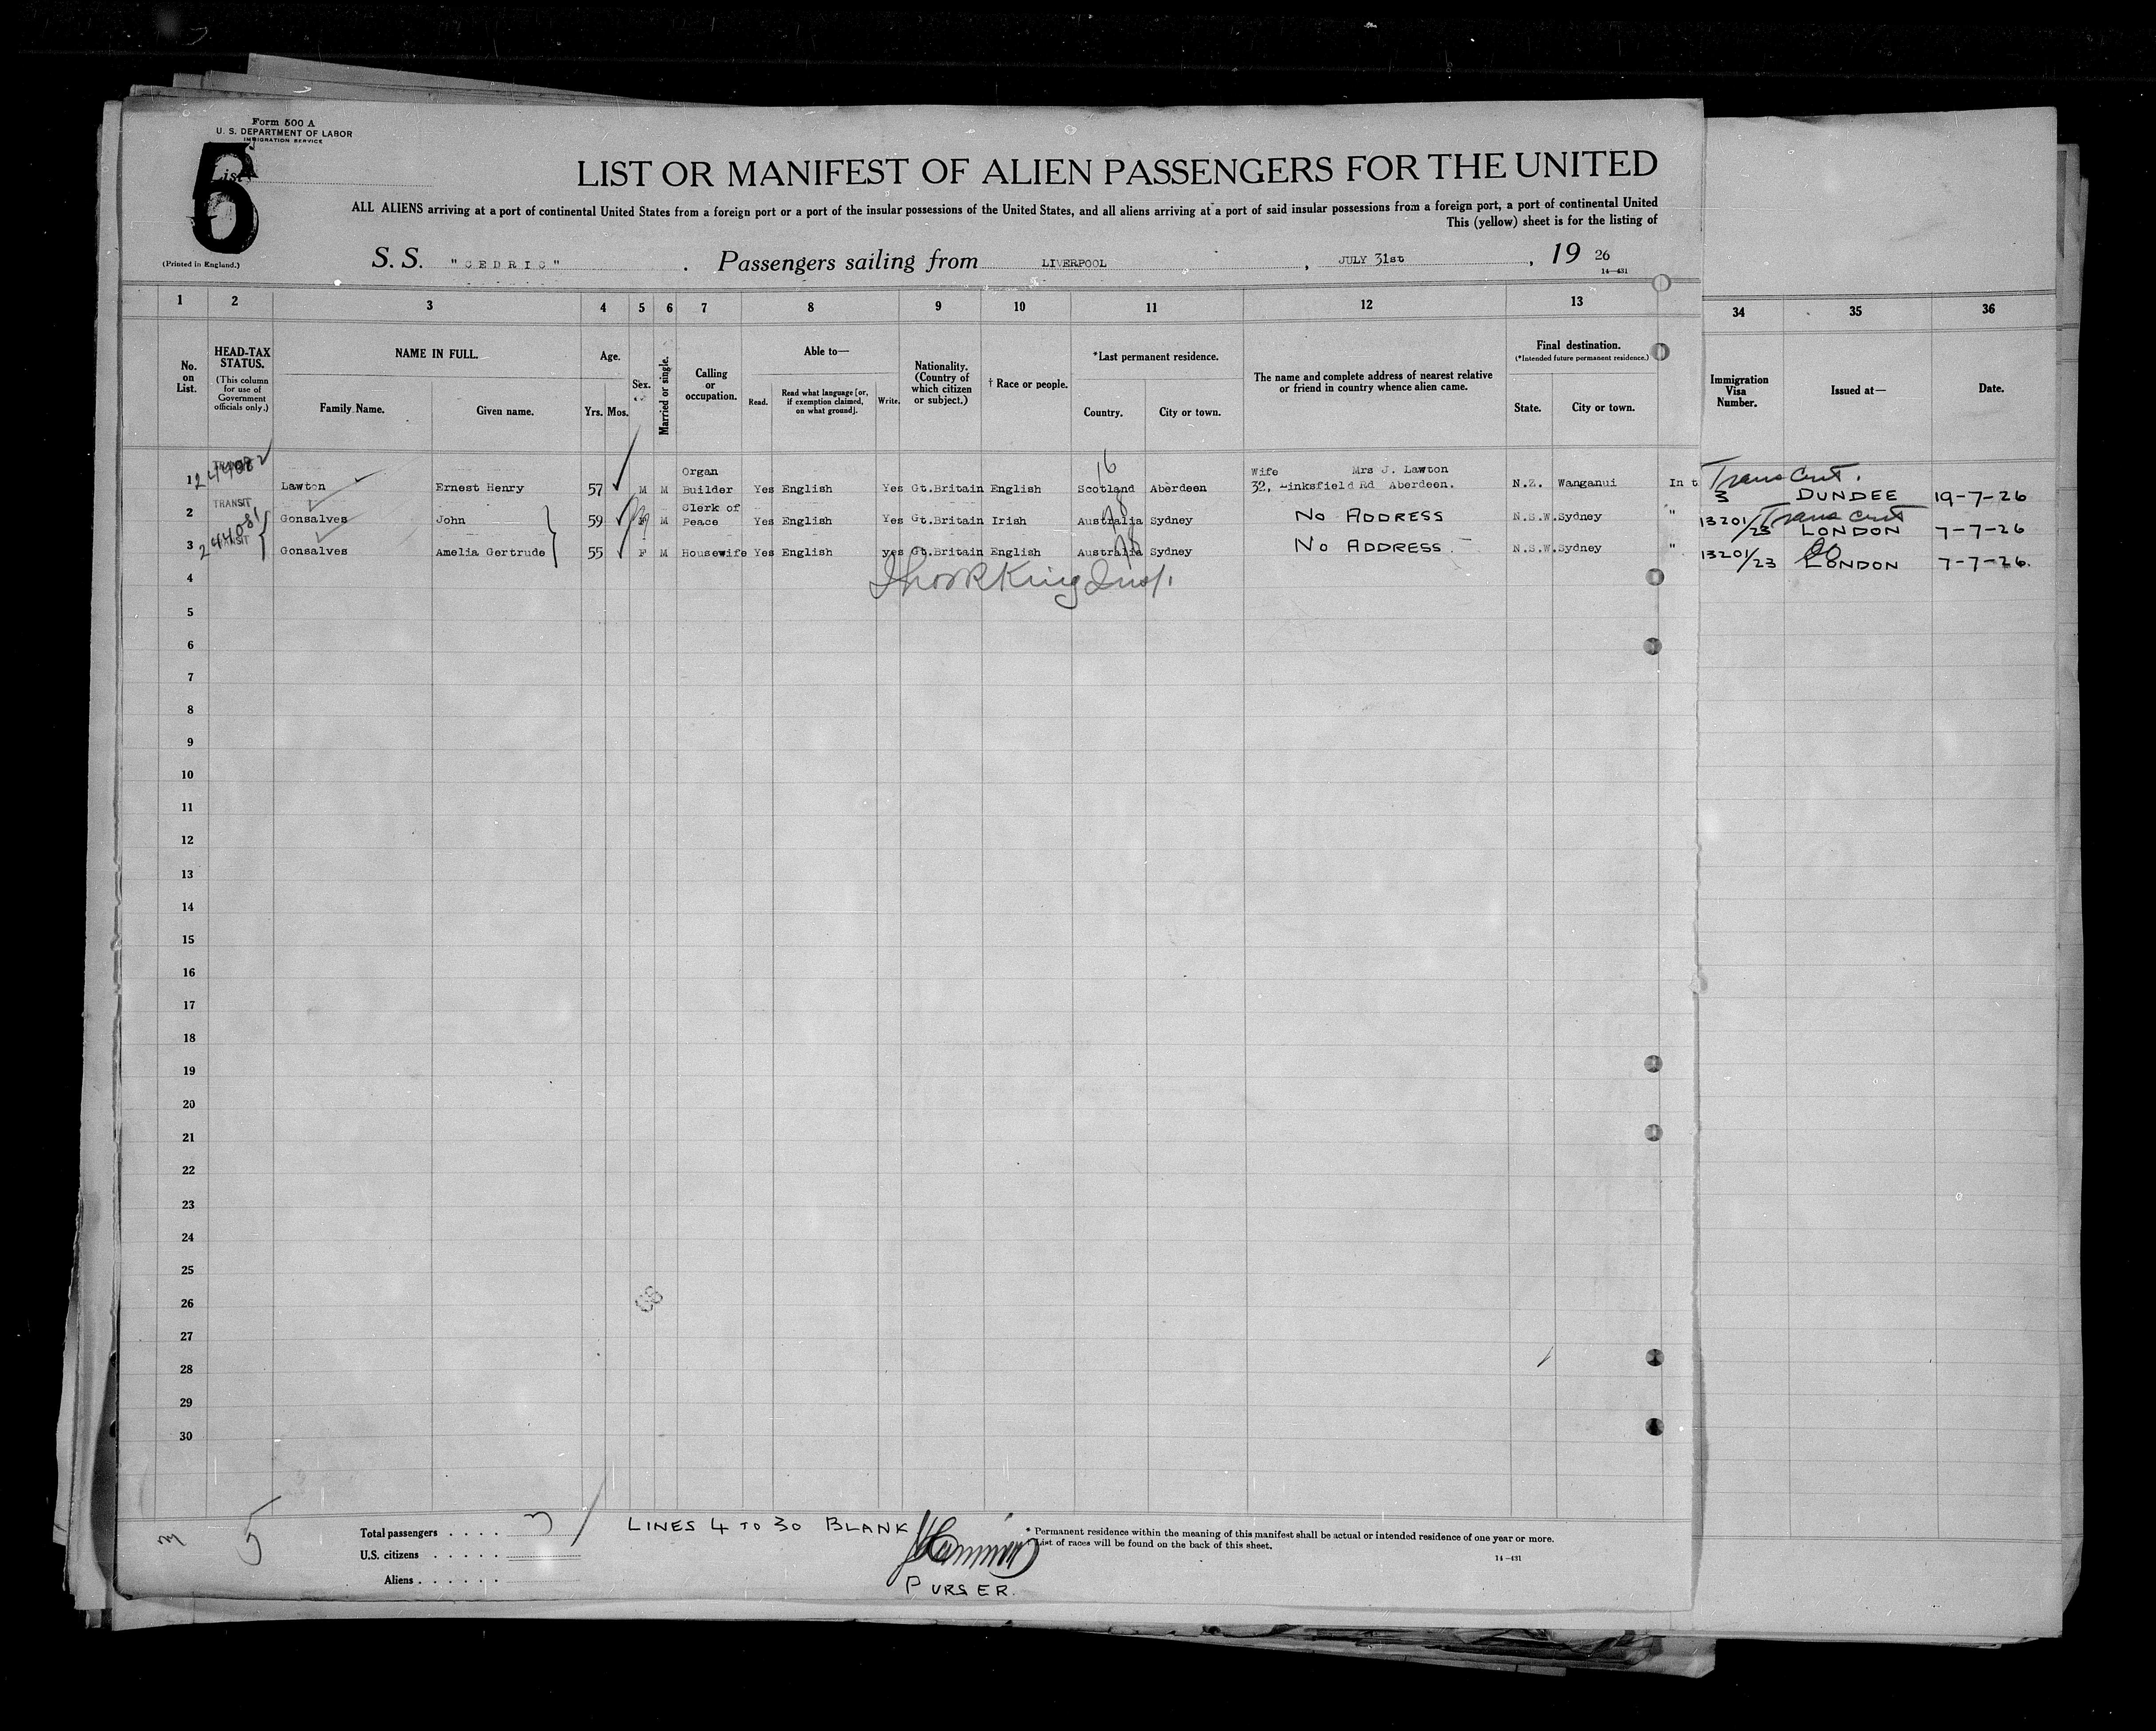 Form 500 A
U. S. DEPARTMENT OF LABOR
IMMIGRATION SERVICE
List
5
(Printed in England.)
LIST OR MANIFEST OF ALIEN PASSENGERS FOR THE UNITED
ALL ALIENS arriving at a port of continental United States from a foreign port or a port of the insular possessions of the United States, and all aliens arriving at a port of said insular possessions from a foreign port, a port of continental United
This (yellow) sheet is for the listing of
S. S. "CEDRIC". Passengers sailing from LIVERPOOL, JULY 31st, 19 26
14—431
1 2 3 4 5 6 7 8 9 10 11 12 13 34 35 36
No. on List.
HEAD-TAX STATUS.
(This column for use of Government officials only.)
NAME IN FULL.
Family Name. Given name.
Age.
Yrs. Mos.
Sex.
Married or single.
Calling or occupation.
Able to—
Read. Read what language [or, if exemption claimed, on what ground]. Write.
Nationality. (Country of which citizen or subject.)
† Race or people.
*Last permanent residence.
Country. City or town.
The name and complete address of nearest relative or friend in country whence alien came.
Final destination.
(*Intended future permanent residence.)
State. City or town.
Immigration Visa Number.
Issued at—
Date.
1 244082 TRANSIT Lawton Ernest Henry 57 M M Organ Builder Yes English Yes Gt.Britain English Scotland Aberdeen Wife Mrs J. Lawton 32, Linksfield Rd Aberdeen. N.Z. Wanganui In t Trans Cert. 3 DUNDEE 19-7-26
16
2 TRANSIT Gonsalves John 59 M M Clerk of Peace Yes English Yes Gt.Britain Irish Australia Sydney NO ADDRESS N.S.W. Sydney " 13201/23 Trans Cert LONDON 7-7-26
3 244081 TRANSIT Gonsalves Amelia Gertrude 55 F M Housewife Yes English yes Gt.Britain English Australia Sydney NO ADDRESS. N.S.W. Sydney " 13201/23 do LONDON 7-7-26.
4
5
6
7
8
9
10
11
12
13
14
15
16
17
18
19
20
21
22
23
24
25
26
27
28
29
30
5
Total passengers . . . . 3
U.S. citizens . . . . .
Aliens . . . . . .
LINES 4 TO 30 BLANK
PURSER.
* Permanent residence within the meaning of this manifest shall be actual or intended residence of one year or more.
† List of races will be found on the back of this sheet.
14—431